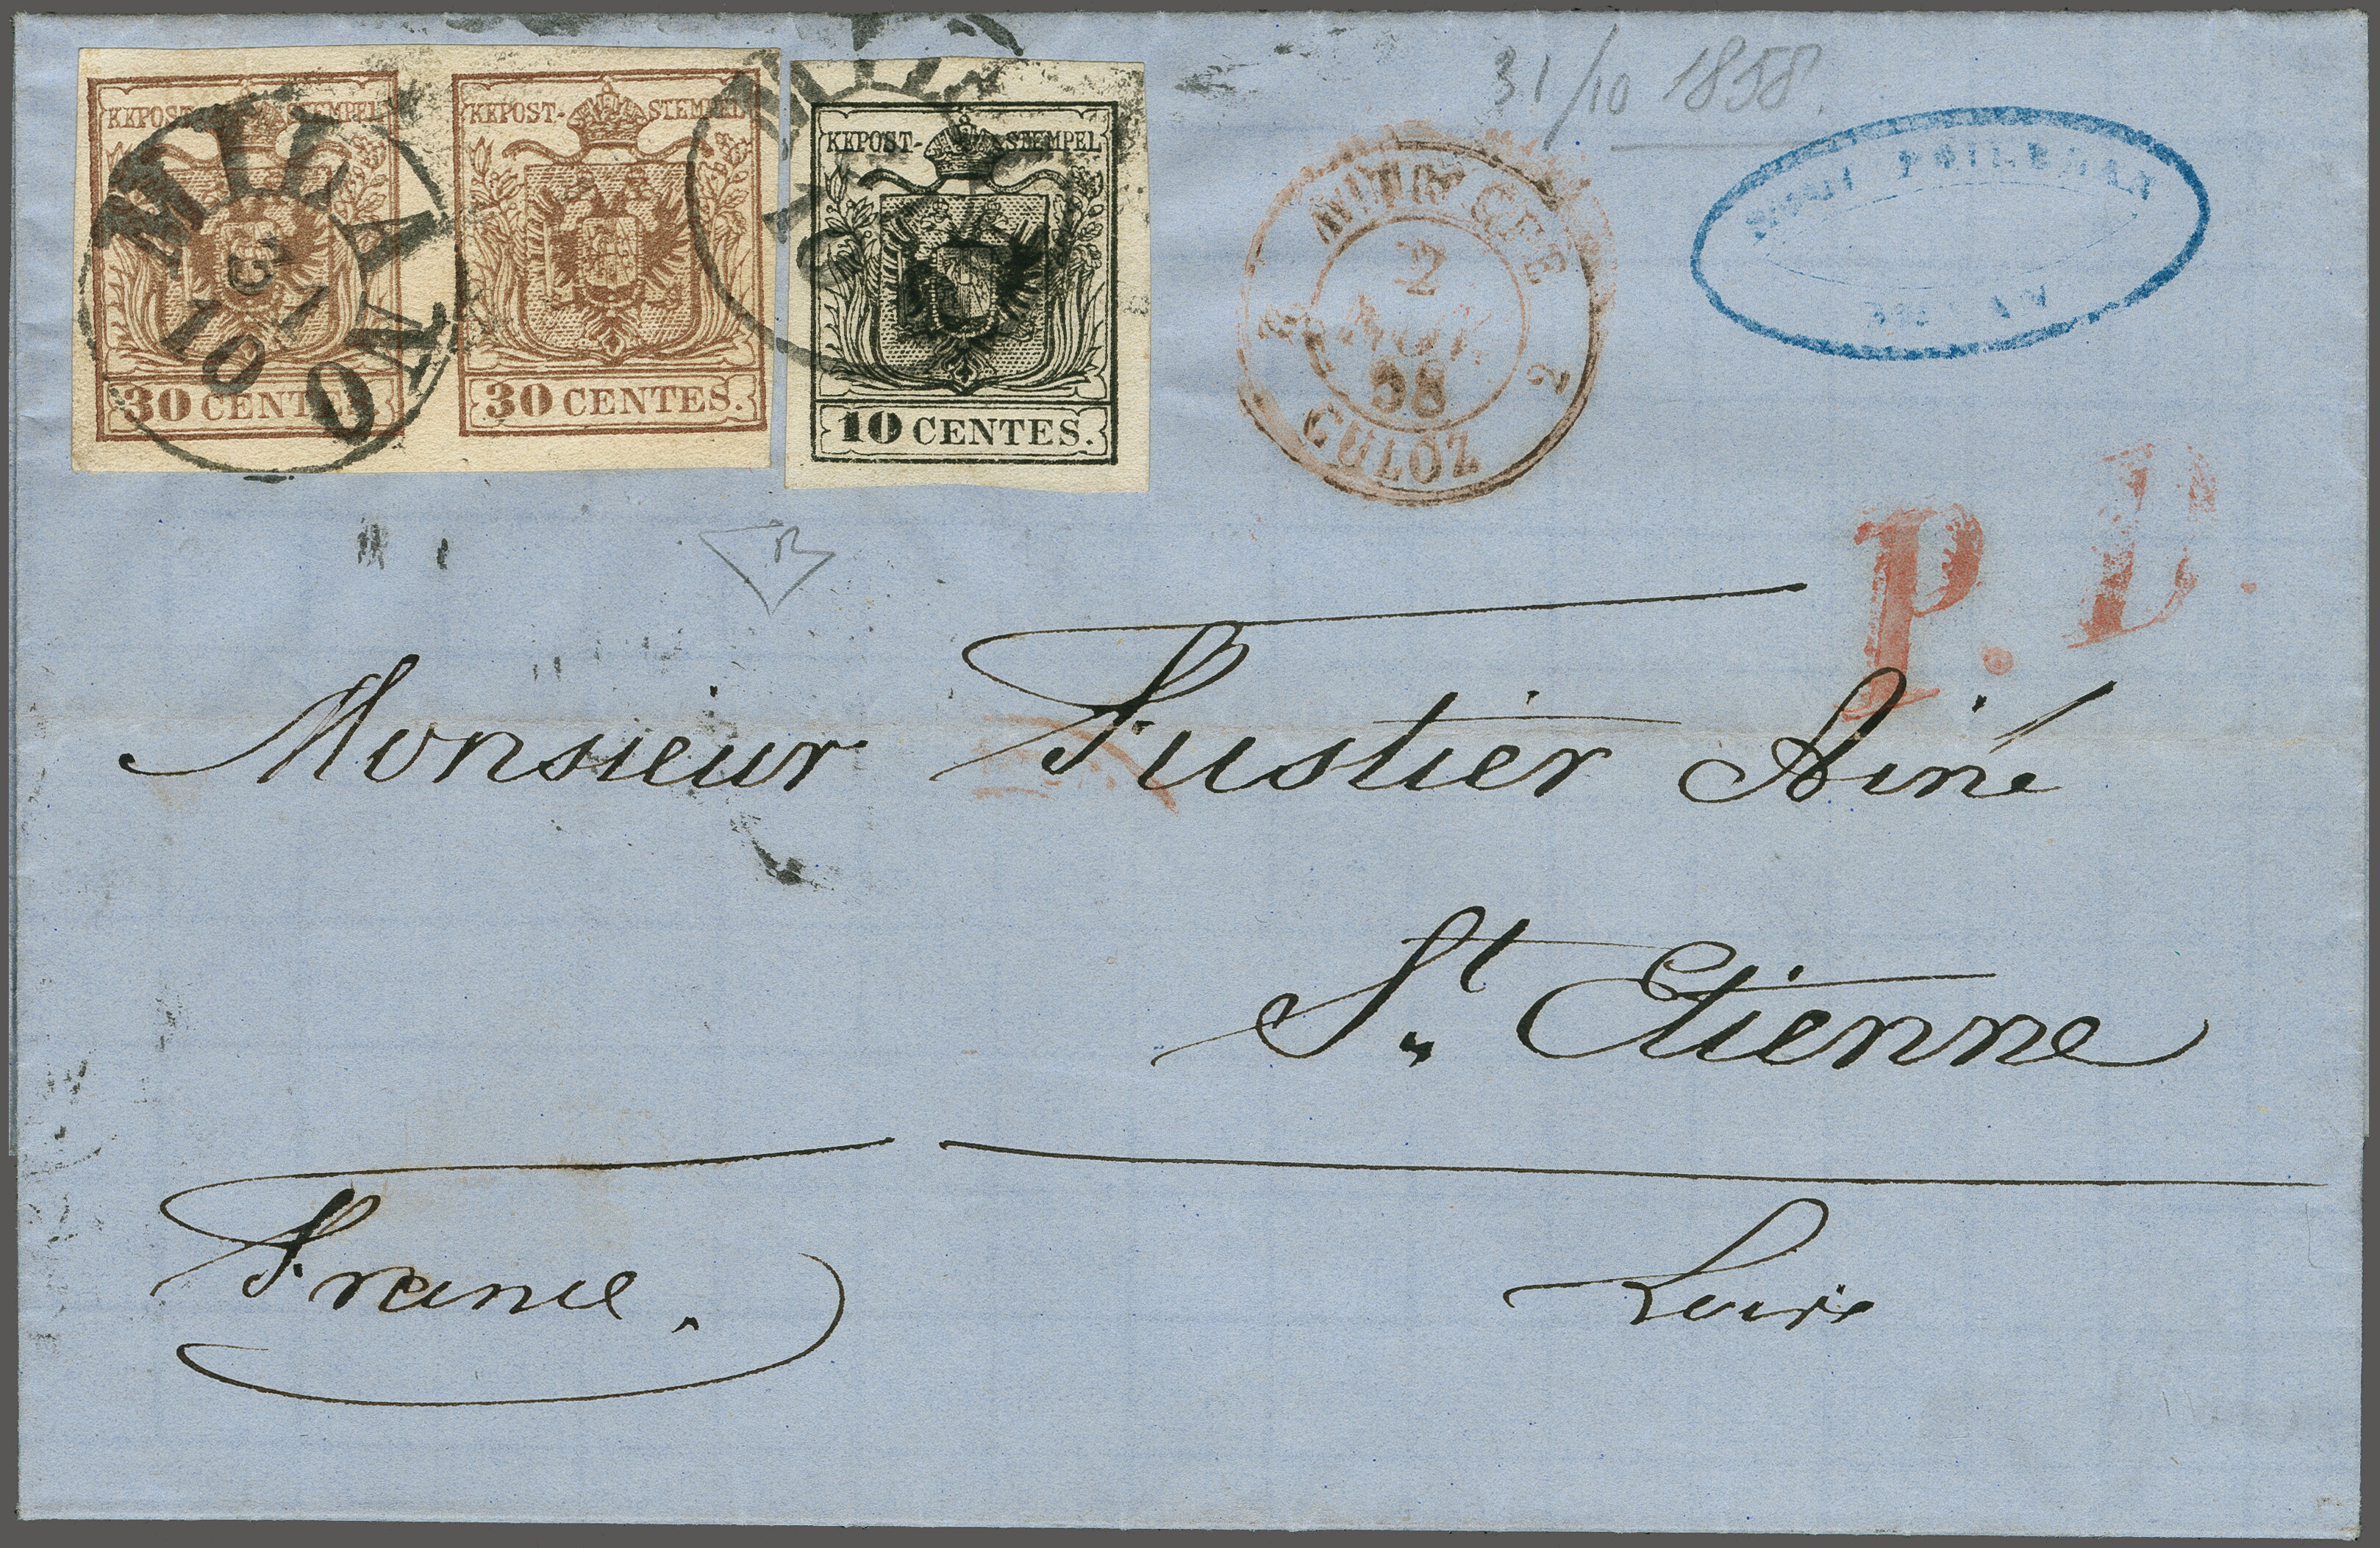 KKPOST-STEMPEL
30 CENTES.
KKPOST-STEMPEL
30 CENTES.
KKPOST-STEMPEL
10 CENTES.
MILANO
31
10
31/10 1858
AUTRICHE
2
NOV.
58
CULOZ
2 2
P.D.
Monsieur Fustier Ainé
St. Etienne
Loire
France.